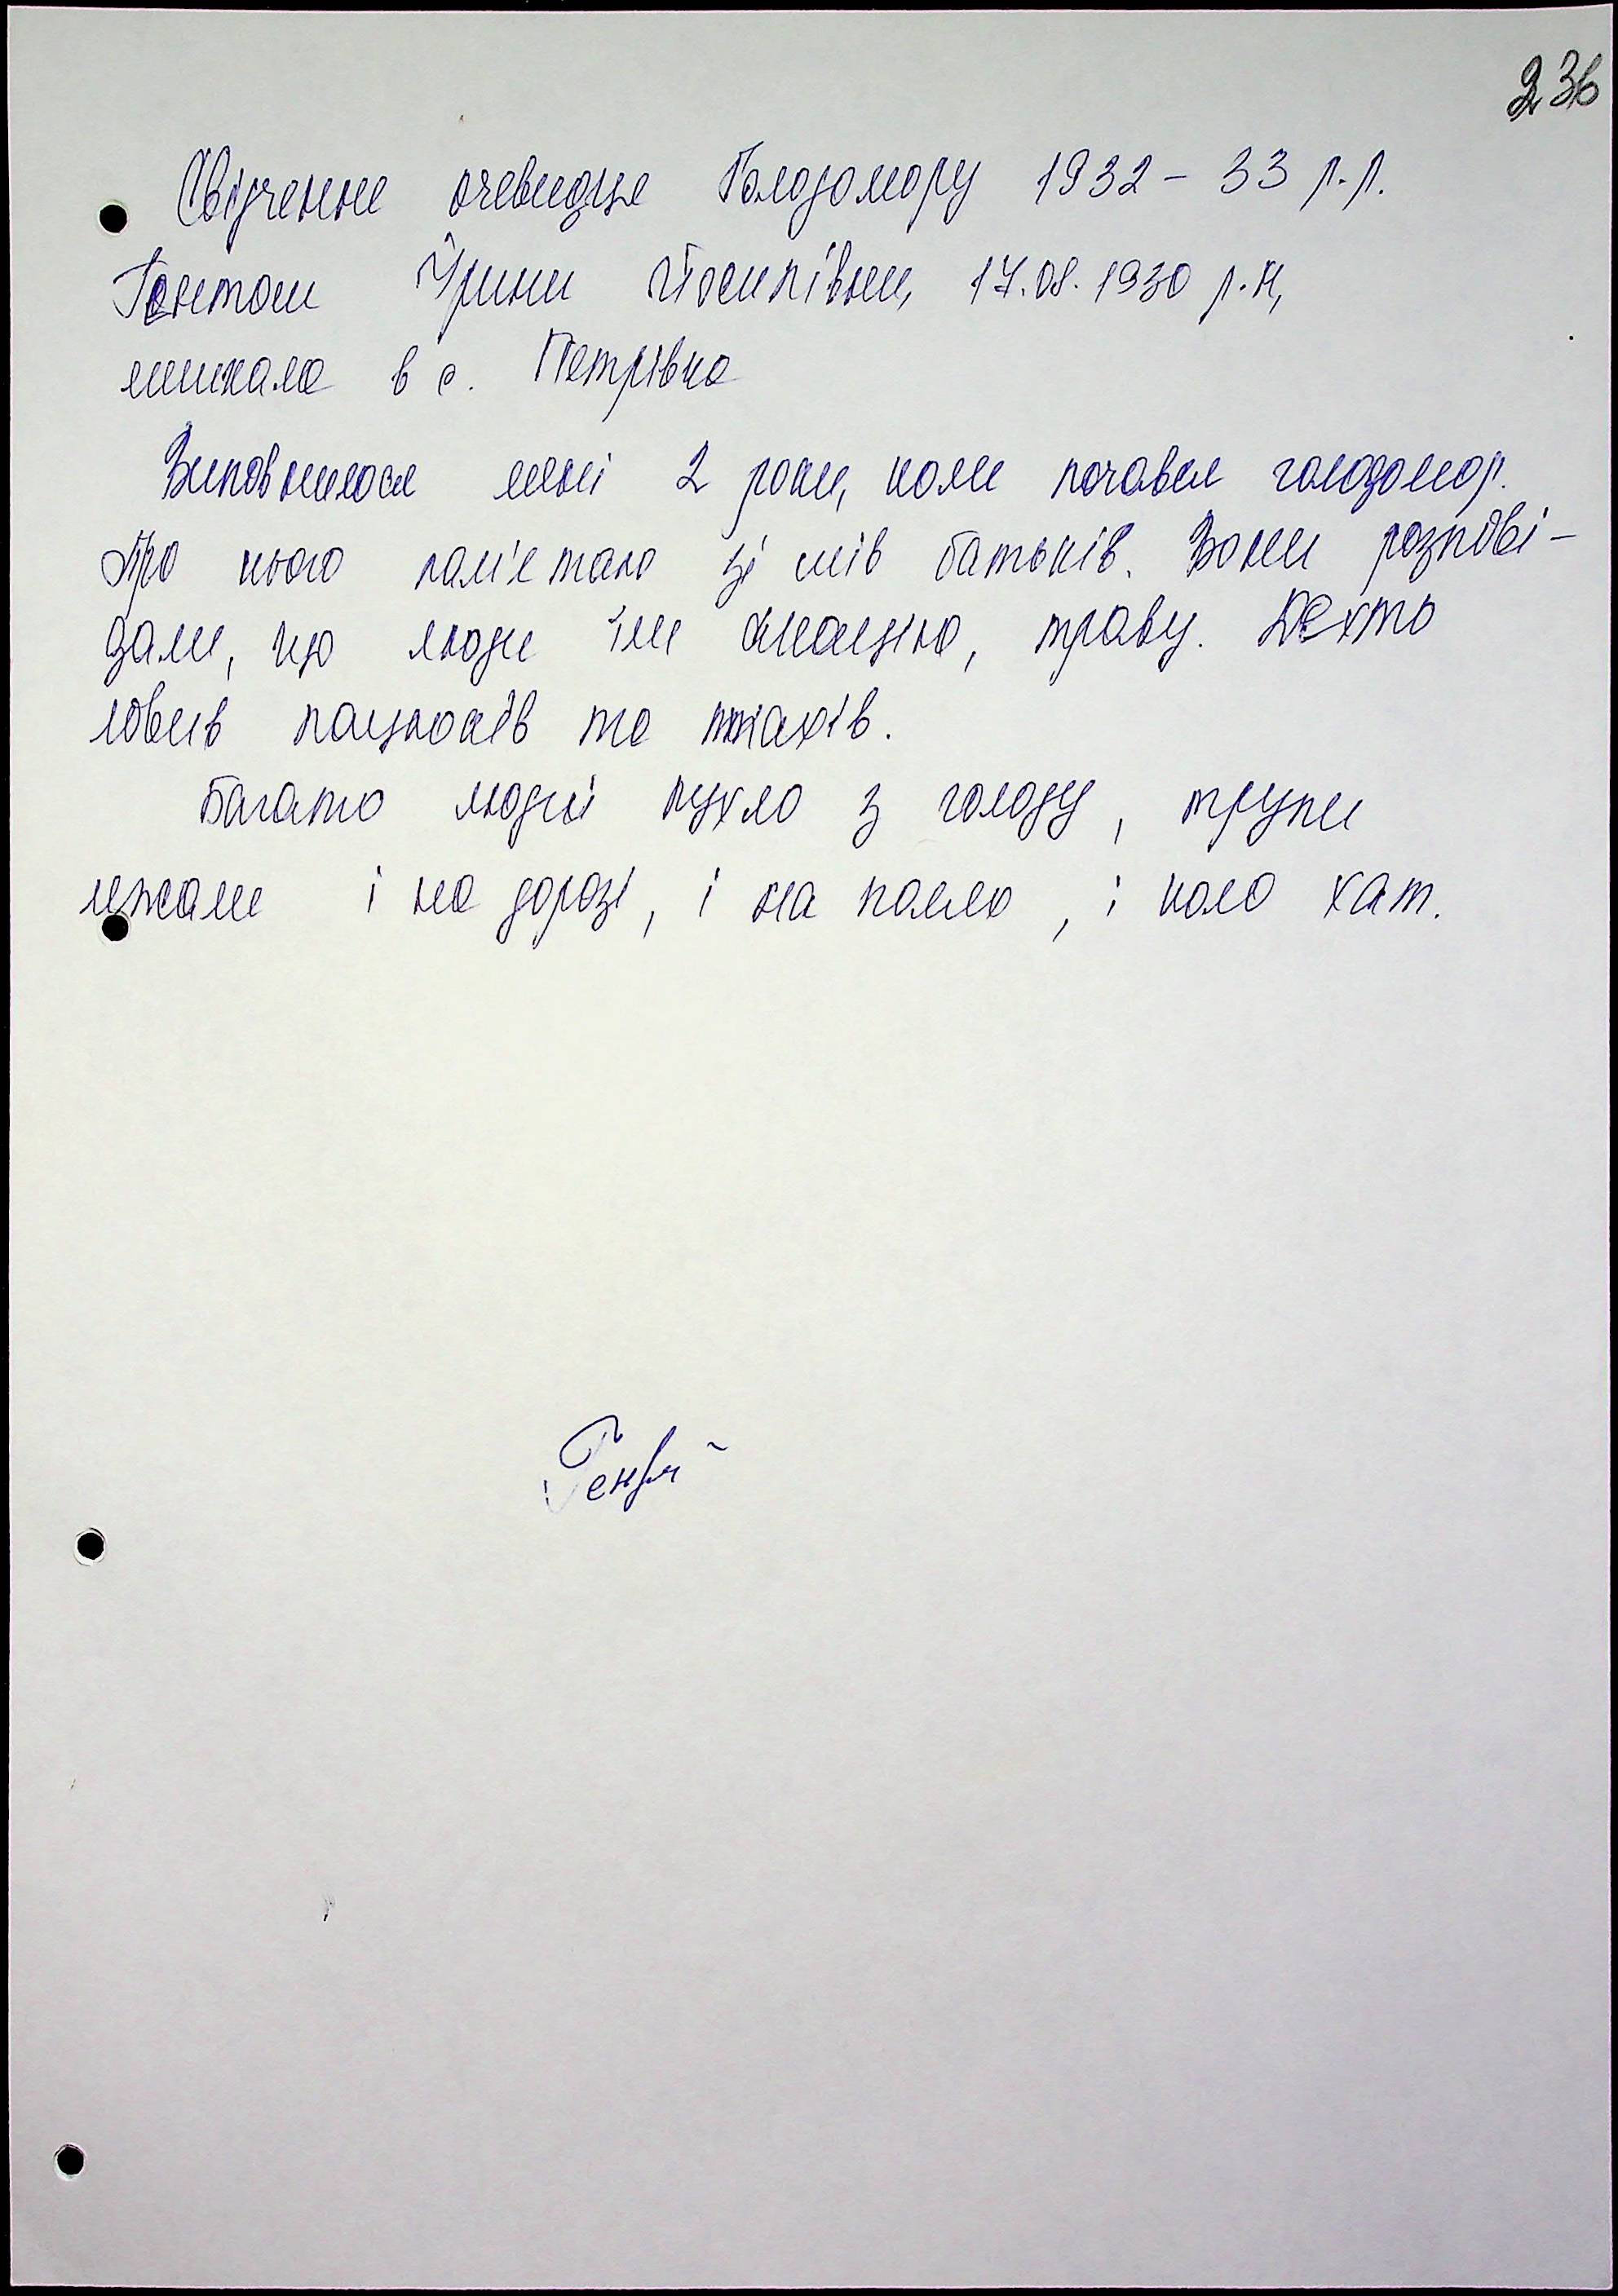 236
Свідчення очевидця Голодомору 1932 - 33 р.р.
Гонтош Ірини Йосипівни, 17.08.1930 р.н,
мешкала в с. Петрівка
Виповнилося мені 2 роки, коли почався голодомор.
Про нього пам'ятаю зі слів батьків. Вони розпові-
дали, що люди їли акацію, траву. Дехто
ловив пацюків та птахів.
Багато людей пухло з голоду, трупи
лежали і на дорозі, і на полю, і коло хат.